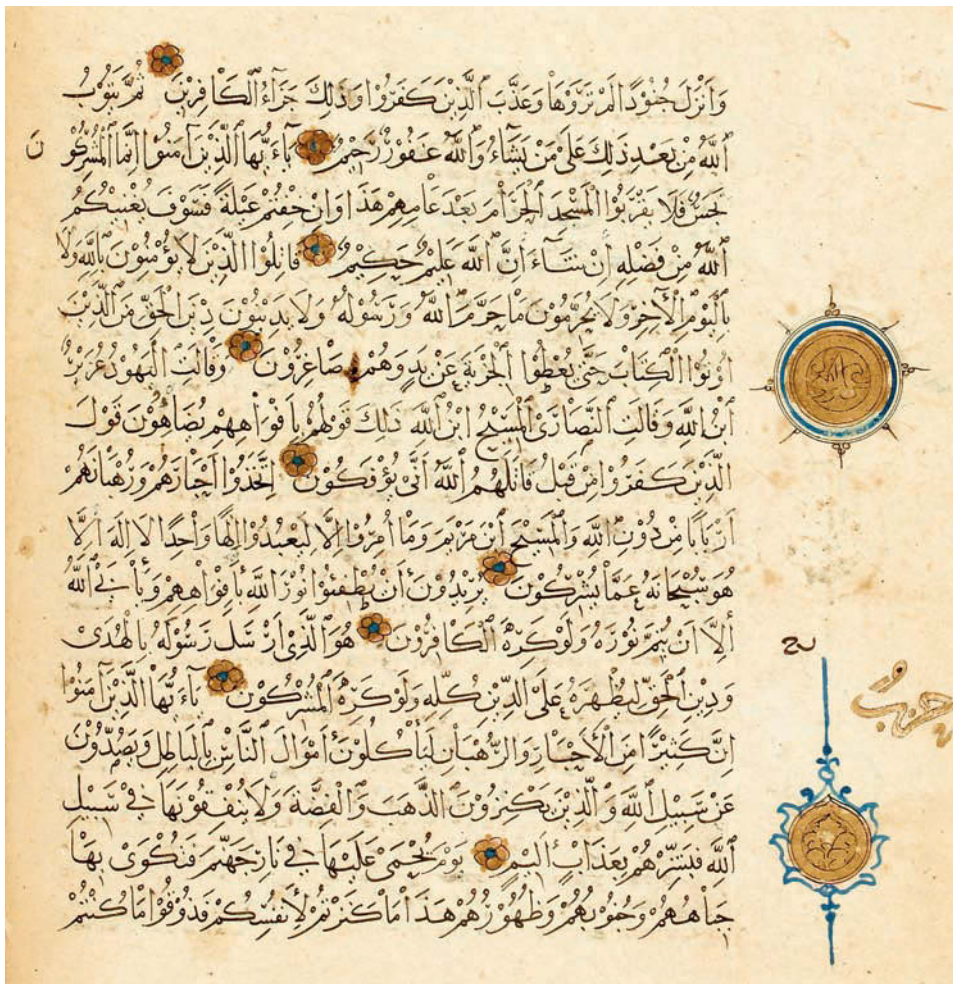 وَأَنْزَلَ جُنُودًا لَمْ تَرَوْهَا وَعَذَّبَ ٱلَّذِينَ كَفَرُوا وَذَٰلِكَ جَزَآءُ ٱلْكَافِرِينَ ثُمَّ يَتُوبُ
ٱللَّهُ مِنْ بَعْدِ ذَٰلِكَ عَلَىٰ مَنْ يَشَآءُ وَٱللَّهُ غَفُورٌ رَحِيمٌ يَآءَيُّهَا ٱلَّذِينَ آمَنُوا إِنَّمَا ٱلْمُشْرِكُو
نَ
نَجَسٌ فَلَا يَقْرَبُوا ٱلْمَسْجِدَ ٱلْحَرَامَ بَعْدَ عَامِهِمْ هَذَا وَإِنْ خِفْتُمْ عَيْلَةً فَسَوْفَ يُغْنِيكُمُ
ٱللَّهُ مِنْ فَضْلِهِ إِنْ شَآءَ إِنَّ ٱللَّهَ عَلِيمٌ حَكِيمٌ قَاتِلُوا ٱلَّذِينَ لَا يُؤْمِنُونَ بِٱللَّهِ وَلَا
بِٱلْيَوْمِ ٱلْآخِرِ وَلَا يُحَرِّمُونَ مَا حَرَّمَ ٱللَّهُ وَرَسُولُهُ وَلَا يَدِينُونَ دِينَ ٱلْحَقِّ مِنَ ٱلَّذِينَ
أُوتُوا ٱلْكِتَابَ حَتَّىٰ يُعْطُوا ٱلْجِزْيَةَ عَنْ يَدٍ وَهُمْ صَاغِرُونَ وَقَالَتِ ٱلْيَهُودُ عُزَيْرٌ
ٱبْنُ ٱللَّهِ وَقَالَتِ ٱلنَّصَارَىٰ ٱلْمَسِيحُ ٱبْنُ ٱللَّهِ ذَٰلِكَ قَوْلُهُمْ بِأَفْوَاهِهِمْ يُضَاهُونَ قَوْلَ
ٱلَّذِينَ كَفَرُوا مِنْ قَبْلُ قَاتَلَهُمُ ٱللَّهُ أَنَّىٰ يُؤْفَكُونَ إِتَّخَذُوا أَحْبَارَهُمْ وَرُهْبَانَهُمْ
أَرْبَابًا مِنْ دُونِ ٱللَّهِ وَٱلْمَسِيحَ ٱبْنَ مَرْيَمَ وَمَا أُمِرُوا إِلَّا لِيَعْبُدُوا إِلَٰهًا وَاحِدًا لَا إِلَٰهَ إِلَّا
هُوَ سُبْحَانَهُ عَمَّا يُشْرِكُونَ يُرِيدُونَ أَنْ يُطْفِئُوا نُورَ ٱللَّهِ بِأَفْوَاهِهِمْ وَيَأْبَىٰ ٱللَّهُ
إِلَّا أَنْ يُتِمَّ نُورَهُ وَلَوْ كَرِهَ ٱلْكَافِرُونَ هُوَ ٱلَّذِي أَرْسَلَ رَسُولَهُ بِٱلْهُدَىٰ
وَدِينِ ٱلْحَقِّ لِيُظْهِرَهُ عَلَىٰ ٱلدِّينِ كُلِّهِ وَلَوْ كَرِهَ ٱلْمُشْرِكُونَ يَآءَيُّهَا ٱلَّذِينَ آمَنُوا
إِنَّ كَثِيرًا مِنَ ٱلْأَحْبَارِ وَٱلرُّهْبَانِ لَيَأْكُلُونَ أَمْوَالَ ٱلنَّاسِ بِٱلْبَاطِلِ وَيَصُدُّونَ
عَنْ سَبِيلِ ٱللَّهِ وَٱلَّذِينَ يَكْنِزُونَ ٱلذَّهَبَ وَٱلْفِضَّةَ وَلَا يُنْفِقُونَهَا فِي سَبِيلِ
ٱللَّهِ فَبَشِّرْهُمْ بِعَذَابٍ أَلِيمٍ يَوْمَ يُحْمَىٰ عَلَيْهَا فِي نَارِ جَهَنَّمَ فَتُكْوَىٰ بِهَا
جِبَاهُهُمْ وَجُنُوبُهُمْ وَظُهُورُهُمْ هَذَا مَا كَنَزْتُمْ لِأَنْفُسِكُمْ فَذُوقُوا مَا كُنْتُمْ
حزب